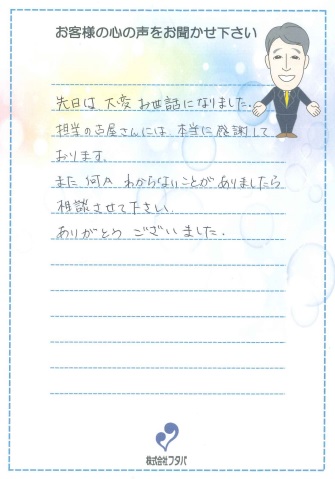 お客様の心の声をお聞かせ下さい
先日は大変お世話になりました.
担当の古屋さんには、本当に感謝して
おります.
また何か わからないことがありましたら
相談させて下さい.
ありがとう ございました.
株式会社フタバ